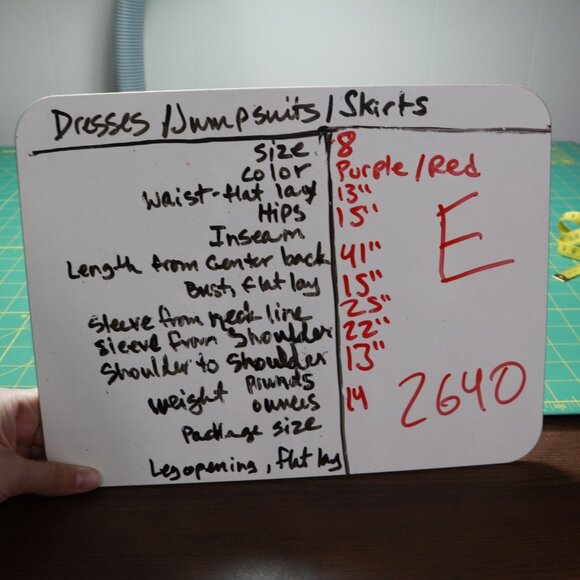 Dresses / Jumpsuits / Skirts
Size 8
Color Purple / Red
Waist-flat lay 13"
Hips 15"
Inseam
Length from Center back 41"
Bust, flat lay 15"
Sleeve from neck line 25"
Sleeve from Shoulder 22"
Shoulder to Shoulder 13"
Pounds
Weight
ounces 14
Package size
Leg opening, flat lay
E
2640